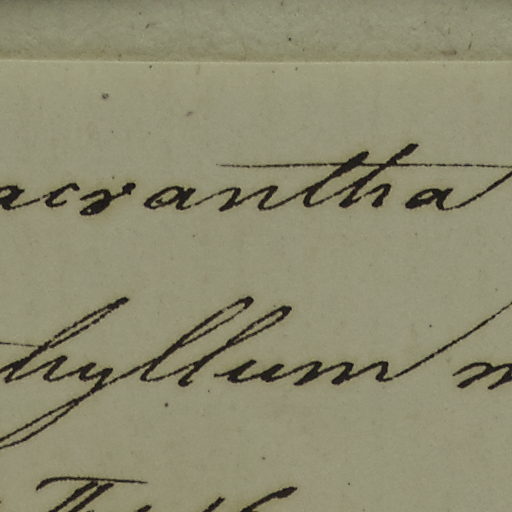 acrantha
hyllum m